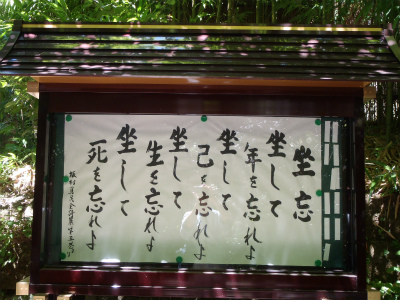 坐忘
坐して
年を忘れよ
坐して
己を忘れよ
坐して
生を忘れよ
坐して
死を忘れよ
坂村真民